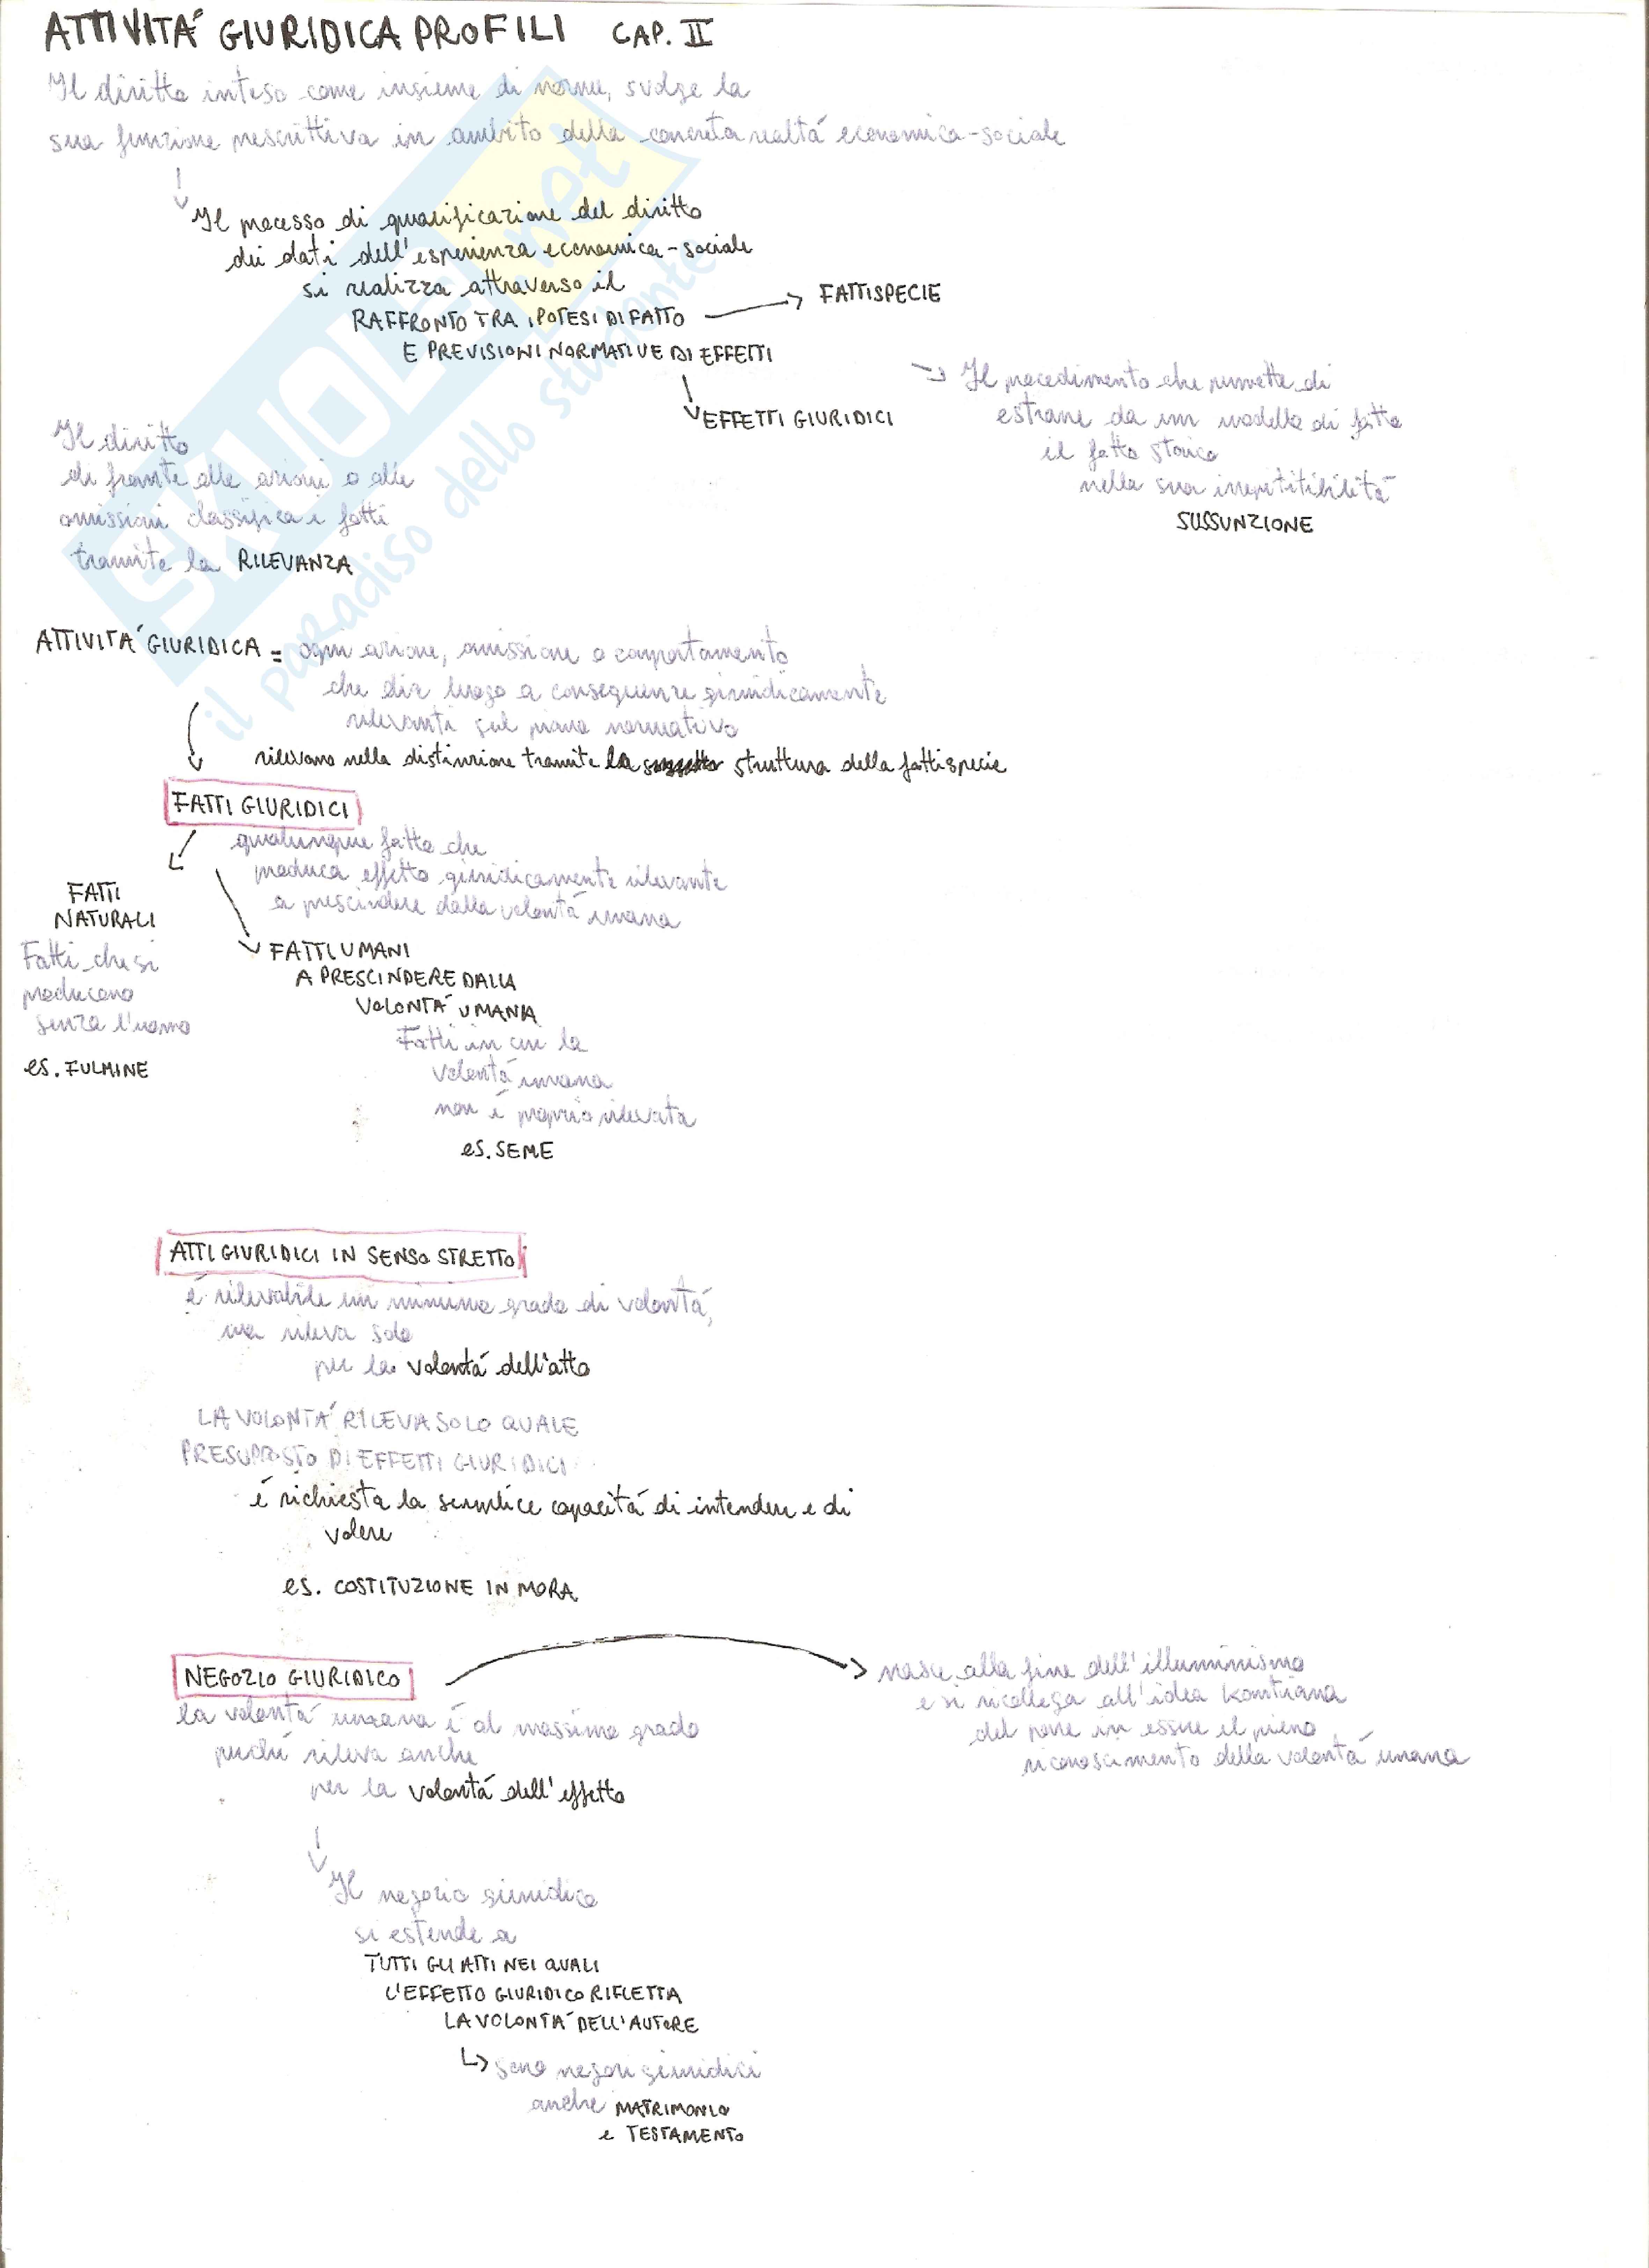 ATTIVITÀ GIURIDICA PROFILI CAP. II
Il diritto inteso come insieme di norme, svolge la
sua funzione prescrittiva in ambito della concreta realtà economica-sociale
Il processo di qualificazione del diritto
dei dati dell'esperienza economica-sociale
si realizza attraverso il
RAFFRONTO TRA IPOTESI DI FATTO
FATTISPECIE
E PREVISIONI NORMATIVE DI EFFETTI
EFFETTI GIURIDICI
Il procedimento che permette di
estrarre da un modello di fatto
il fatto storico
nella sua irripetitibilità
SUSSUNZIONE
Il diritto
di fronte alle azioni o alle
omissioni classifica i fatti
tramite la RILEVANZA
SKUOLA.net
il paradiso dello studente
ATTIVITÀ GIURIDICA = ogni azione, omissione o comportamento
che dia luogo a conseguenze giuridicamente
rilevanti sul piano normativo
rilevano nella distinzione tramite la struttura della fattispecie
FATTI GIURIDICI
qualunque fatto che
produca effetto giuridicamente rilevante
a prescindere dalla volontà umana
FATTI
NATURALI
Fatti che si
producono
senza l'uomo
es. FULMINE
FATTI UMANI
A PRESCINDERE DALLA
VOLONTÀ UMANA
Fatti in cui la
volontà umana
non è proprio rilevata
es. SEME
ATTI GIURIDICI IN SENSO STRETTO
è rilevabile un minimo grado di volontà,
ma rileva solo
per la volontà dell'atto
LA VOLONTÀ RILEVA SOLO QUALE
PRESUPPOSTO DI EFFETTI GIURIDICI
è richiesta la semplice capacità di intendere e di
volere
es. COSTITUZIONE IN MORA
NEGOZIO GIURIDICO
la volontà umana è al massimo grado
perché rileva anche
per la volontà dell'effetto
nasce alla fine dell'illuminismo
e si ricollega all'idea kantiana
del porre in essere il pieno
riconoscimento della volontà umana
Il negozio giuridico
si estende a
TUTTI GLI ATTI NEI QUALI
L'EFFETTO GIURIDICO RIFLETTA
LA VOLONTÀ DELL'AUTORE
sono negozi giuridici
anche MATRIMONIO
e TESTAMENTO